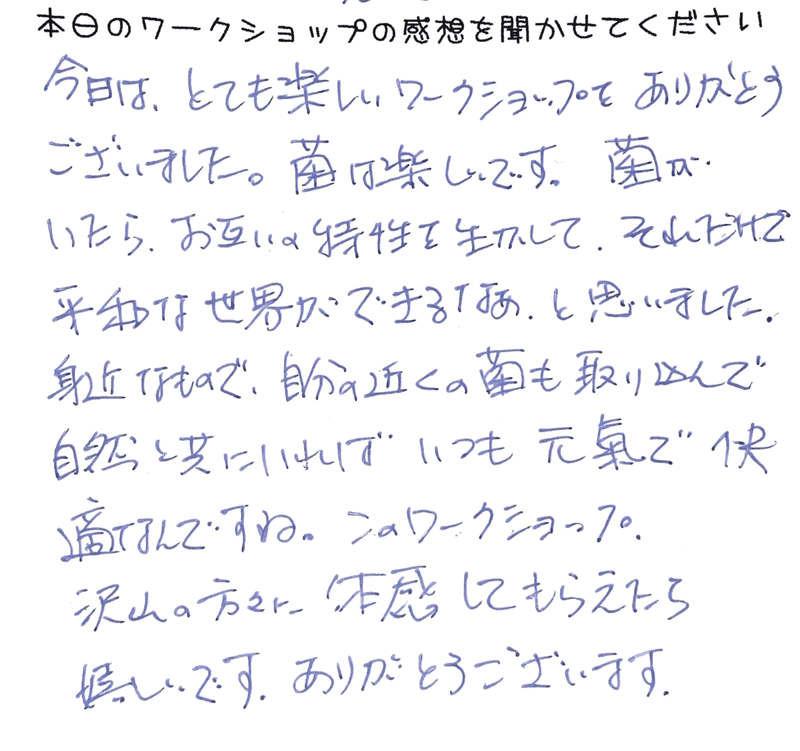 本日のワークショップの感想を聞かせてください
今日は、とても楽しいワークショップを ありがとう
ございました。菌は楽しいです。菌が
いたら、お互いの特性を生かして、それだけで
平和な世界ができるなあ、と思いました。
身近なもので、自分の近くの菌も取り込んで
自然と共にいれば いつも 元氣で 快
適なんですね。このワークショップ、
沢山の方々に 体感してもらえたら
嬉しいです。ありがとうございます。